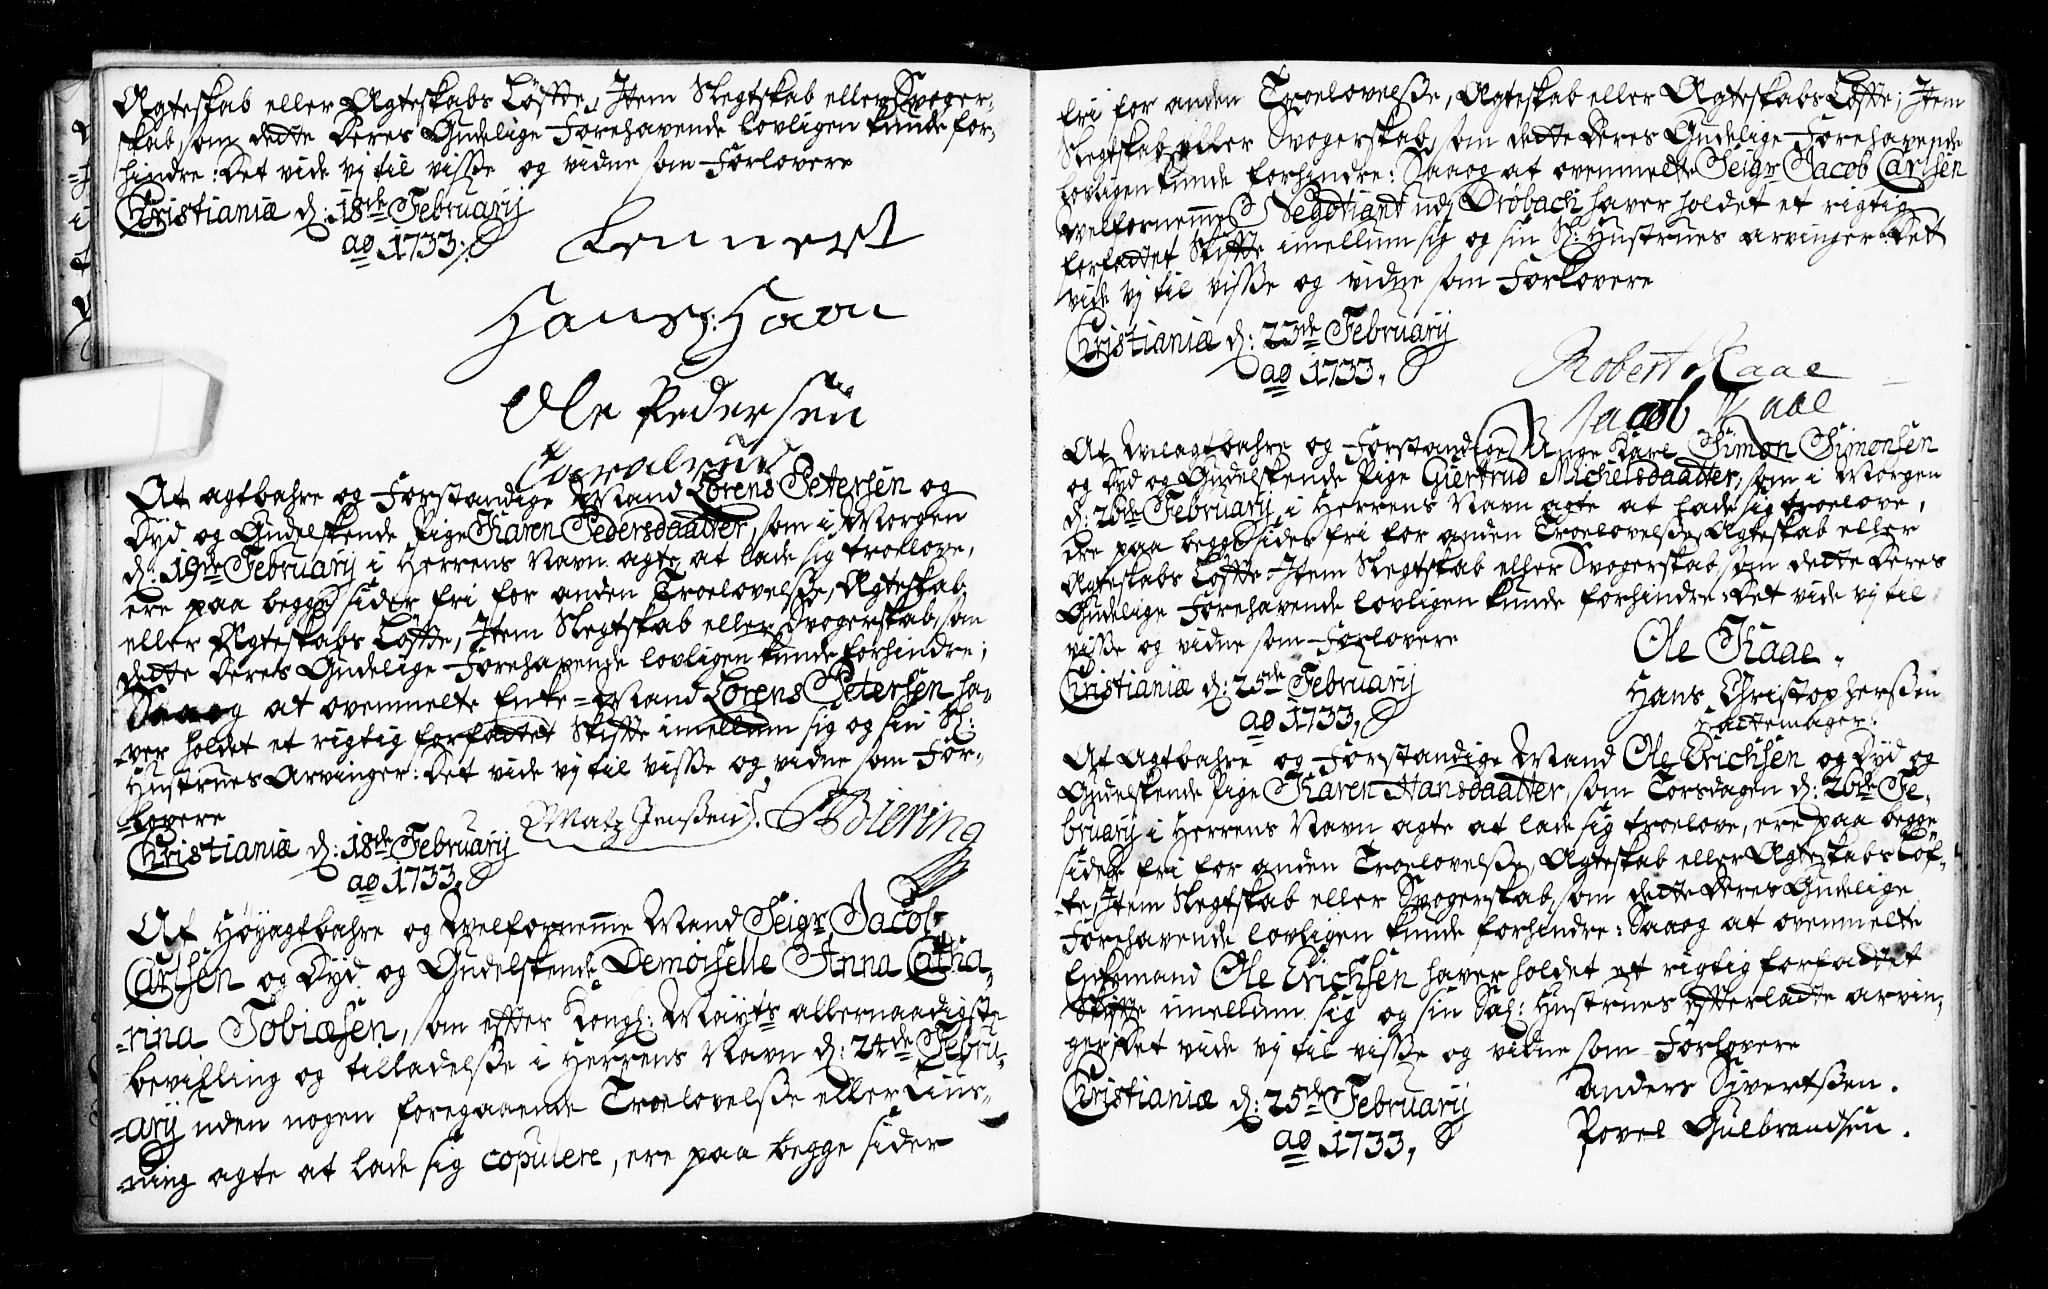 Ægteskab eller Ægteskabs Løffte, Item Slegtskab eller Svoger-
skab, som dette deres Gudelige Forehavende lovligen kunde for-
hindre: Det vide vj til visse og vidne som Forlovere
Christianiæ d: 18de Februarij
ao 1733.
Lennert
Hans: Haon
Ole Pedersen
At agtbahre og Forstandige Mand Lorens Petersen og
Dyd og Gudelskende Pige Karen Pedersdaatter, som i Morgen
d: 19de Februarij i Herrens Navn agte at lade sig troelove,
ere paa begge sider fri for anden Troelovelsse, Ægteskab
eller Ægteskabs Løffte, Item Slegtskab eller Svogerskab, som
dette deres Gudelige Forehavende lovligen kunde forhindre;
Saaog at ovenmelte Enke-Mand Lorens Petersen ha-
-ver holdet et rigtig forfattet Skiffte imellum sig og sin Sl:
Hustrues Arvinger: Det vide vj til visse og vidne som For-
-lovere
Christianiæ d: 18de Februarij
ao 1733.
Matz Jenssen. Biering
At Høyagtbahre og Welfornemme Mand Seigr Jacob
Carlsen og Dyd og Gudelskende Demoiselle Anna Catha-
-rina Tobiæsen, som effter Kongl: Mayts allernaadigste
bevilling og tilladelsse i Herrens Navn d: 24de Febru-
-arij uden nogen foregaaende Troelovelsse eller Lius-
-ning agte at lade sig copulere, ere paa begge sider
fri for anden Troelovelsse, Ægteskab eller Ægteskabs Løffte; Item
Slegtskab eller Svogerskab, som dette deres Gudelige Forehavende
lovligen kunde forhindre: Saaog at ovenmelte Seigr Jacob Carlsen
Welfornemme Negotiant udj Drøbach haver holdet et rigtig
forfattet Skiffte imellum sig og sin Sl: Hustrues arvinger: Det
vide vj til visse og vidne som Forlovere
Christianiæ d: 23de Februarij
ao 1733.
Robert Kaae
Jacob Kaae
At Welagtbahre og Forstandige Unge Karl Simon Simonsen
og Dyd og Gudelskende Pige Giertrud Michelsdaatter, som i Morgen
d: 26de Februarij i Herrens Navn agte at lade sig troelove,
ere paa begge sider fri for anden Troelovelsse, Ægteskab eller
Ægteskabs Løffte Item Slegtskab eller Svogerskab, som dette deres
Gudelige Forehavende lovligen kunde forhindre: Det vide vj til
visse og vidne som Forlovere
Christianiæ d: 25de Februarij
ao 1733.
Ole Kaae.
Hans Christophersen
Hattemager:
At Agtbahre og Forstandige Mand Ole Erichsen og Dyd og
Gudelskende Pige Karen Hansdaatter, som Torsdagen d: 26de Fe-
bruarij i Herrens Navn agte at lade sig troelove, ere paa begge
sider fri for anden Troelovelsse, Ægteskab eller Ægteskabs Løf-
-te, Item Slegtskab eller Svogerskab, som dette deres Gudelige
Forehavende lovligen kunde forhindre: Saaog at ovenmelte
Enkemand Ole Erichsen haver holdet et rigtig forfattet
Skiffte imellum sig og sin Sal: Hustrues efterladte arvin-
ger: Det vide vj til visse og vidne som Forlovere
Christianiæ d: 25de Februarij
ao 1733.
Anders Sivertssen.
Povel Gulbrandsen.